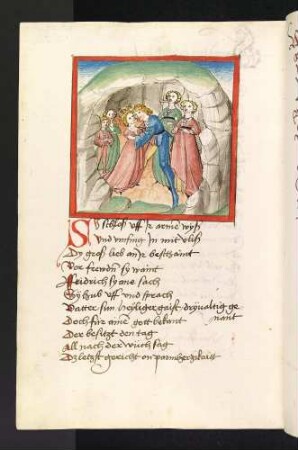 Sy schloß uff ir arme wyß
Vnd vmfing in mit vliß
Dy groß lieb an ir beschaint
Vor frewden sy waint
Fridrich sy ane sach
Sy hub uff vnd sprach
Vatter sun heiliger gaist dryualtig ge
nant
Doch fir aine gott bekant
Der besitzt den tag
all nach der
Dz letzst gericht on